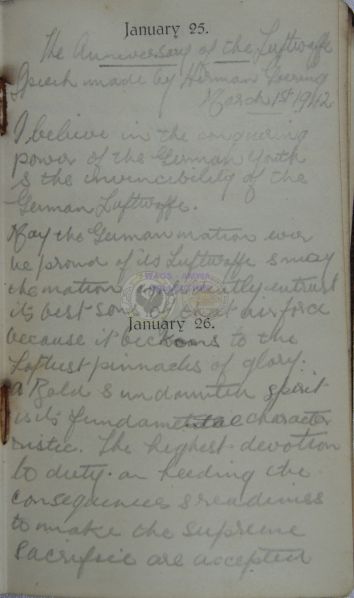 January 25.
The Anniversary of the Luftwaffe
Speech made by Herman Goering
March 1st 1942
I believe in the conquering
power of the German Youth
& the invincibility of the
German Luftwaffe.
May the German nation ever
be proud of its Luftwaffe & may
the nation entrust
its best sons to that air force
January 26.
because it beckons to the
Loftiest pinnacles of glory.
a Bold & undaunted spirit
is its fundamental character
ristic. The highest devotion
to duty. on heeding the
consequences & readiness
to make the supreme
Sacrifice are accepted